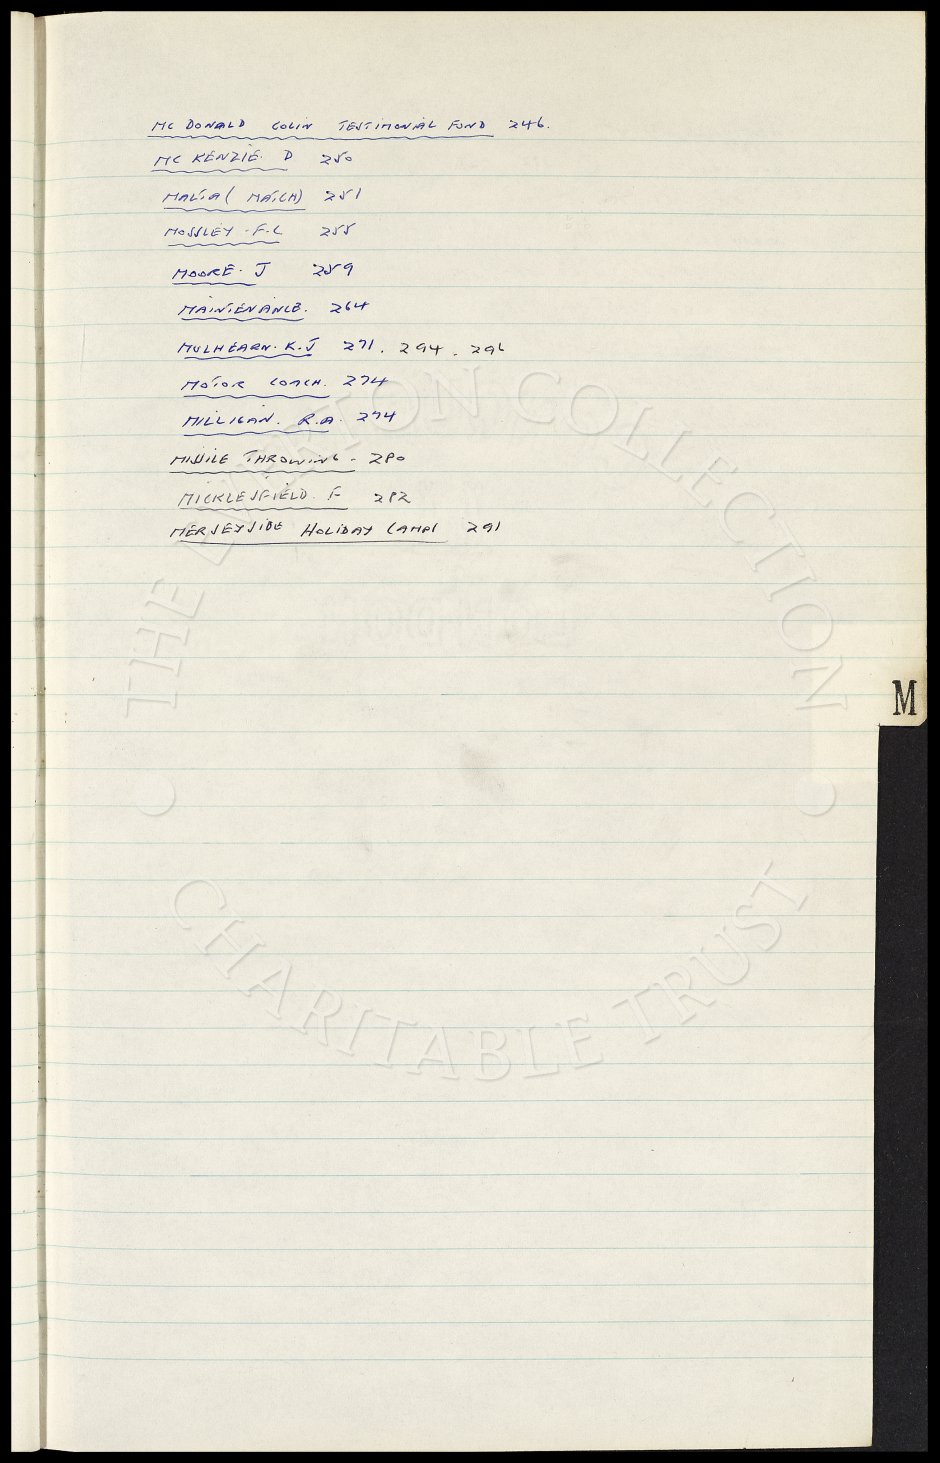 MC DONALD COLIN TESTIMONIAL FUND 246.
MC KENZIE. D 250
MALTA ( MATCH) 251
MOSSLEY . F.C 255
MOORE. J 259
MAINTENANCE. 264
MULHEARN. K.J 271. 294. 296
MOTOR COACH. 274
MILLIGAN. R.A. 274
MISSILE THROWING - 280
MICKLESFIELD. F 282
MERSEYSIDE HOLIDAY CAMPS 291
M
THE EVERTON COLLECTION
CHARITABLE TRUST